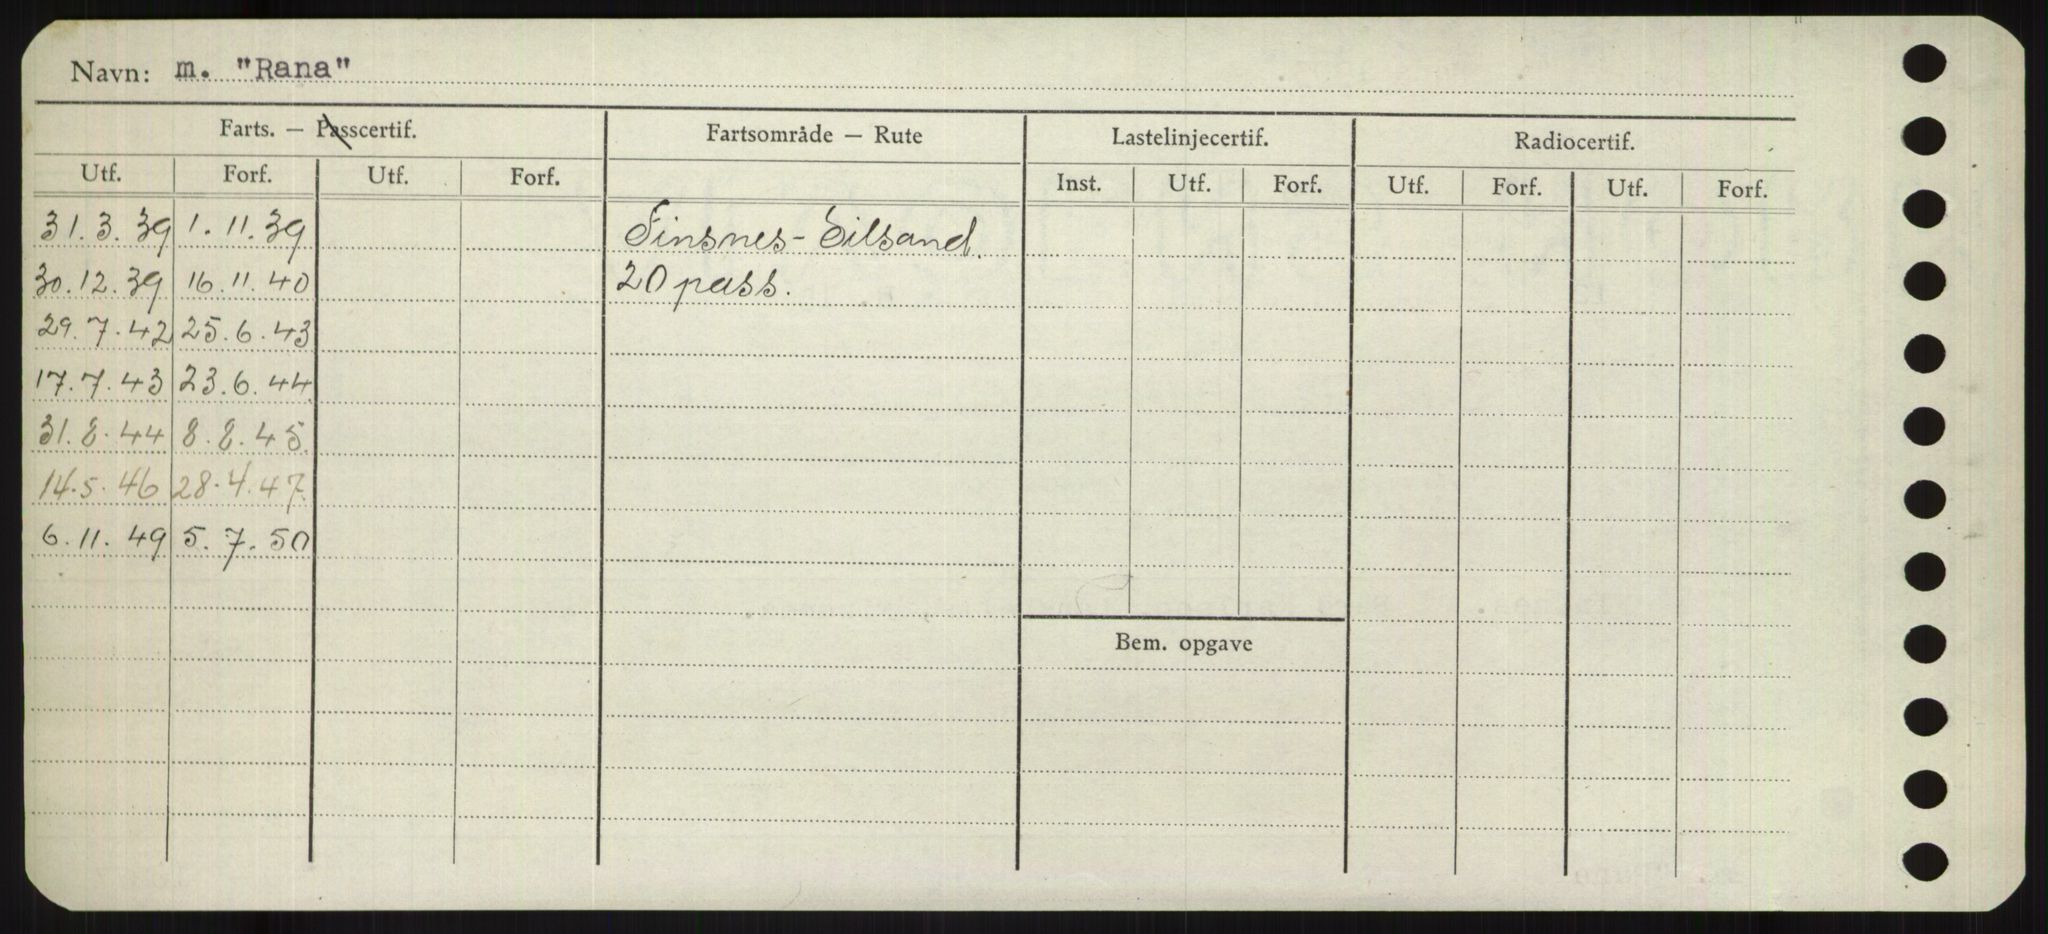 Navn: m. "Rana"
Farts. — Passcertif. Fartsområde — Rute Lastelinjecertif. Radiocertif.
Utf. Forf. Utf. Forf. Inst. Utf. Forf. Utf. Forf. Utf. Forf.
31.3.39 1.11.39 Finsnes - Silsand.
30.12.39 16.11.40 20 pass.
29.7.42 25.6.43
17.7.43 23.6.44
31.8.44 8.8.45
14.5.46 28.4.47
6.11.49 5.7.50
Bem. opgave